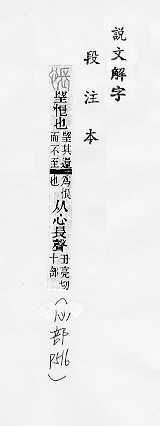 說文解字
段注本
悵
望恨也
望其還
而不至
爲恨
也
从心長聲
丑亮切
十部
（心部
P516）